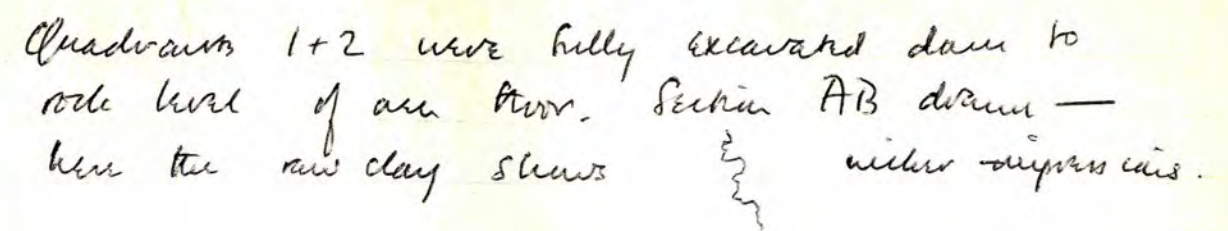 Quadrants 1+2 were fully excavated down to
rock level of oven floor. Section AB drawn —
here the raw clay shows wicker impressions.